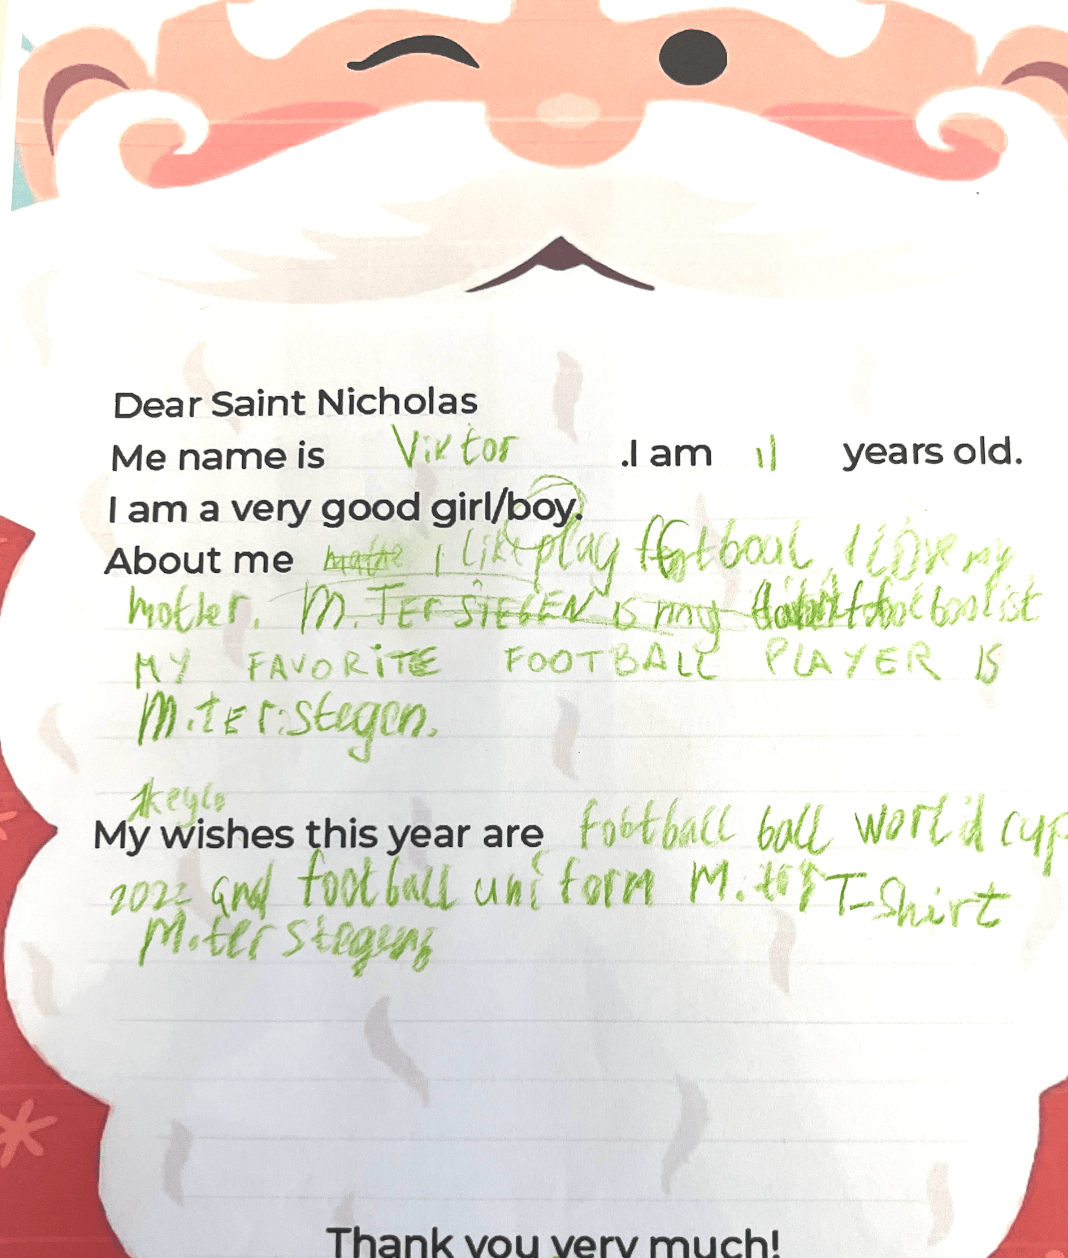 Dear Saint Nicholas
Me name is Viktor .I am 11 years old.
I am a very good girl/boy.
About me I like play football, I love my
mother. M. TER STEGEN is my footboolist
MY FAVORITE FOOTBALL PLAYER IS
M.tEr.Stegen.
My wishes this year are football ball world cup
2022 and football uniform M.ter T-Shirt
M.ter stegens
Thank you very much!